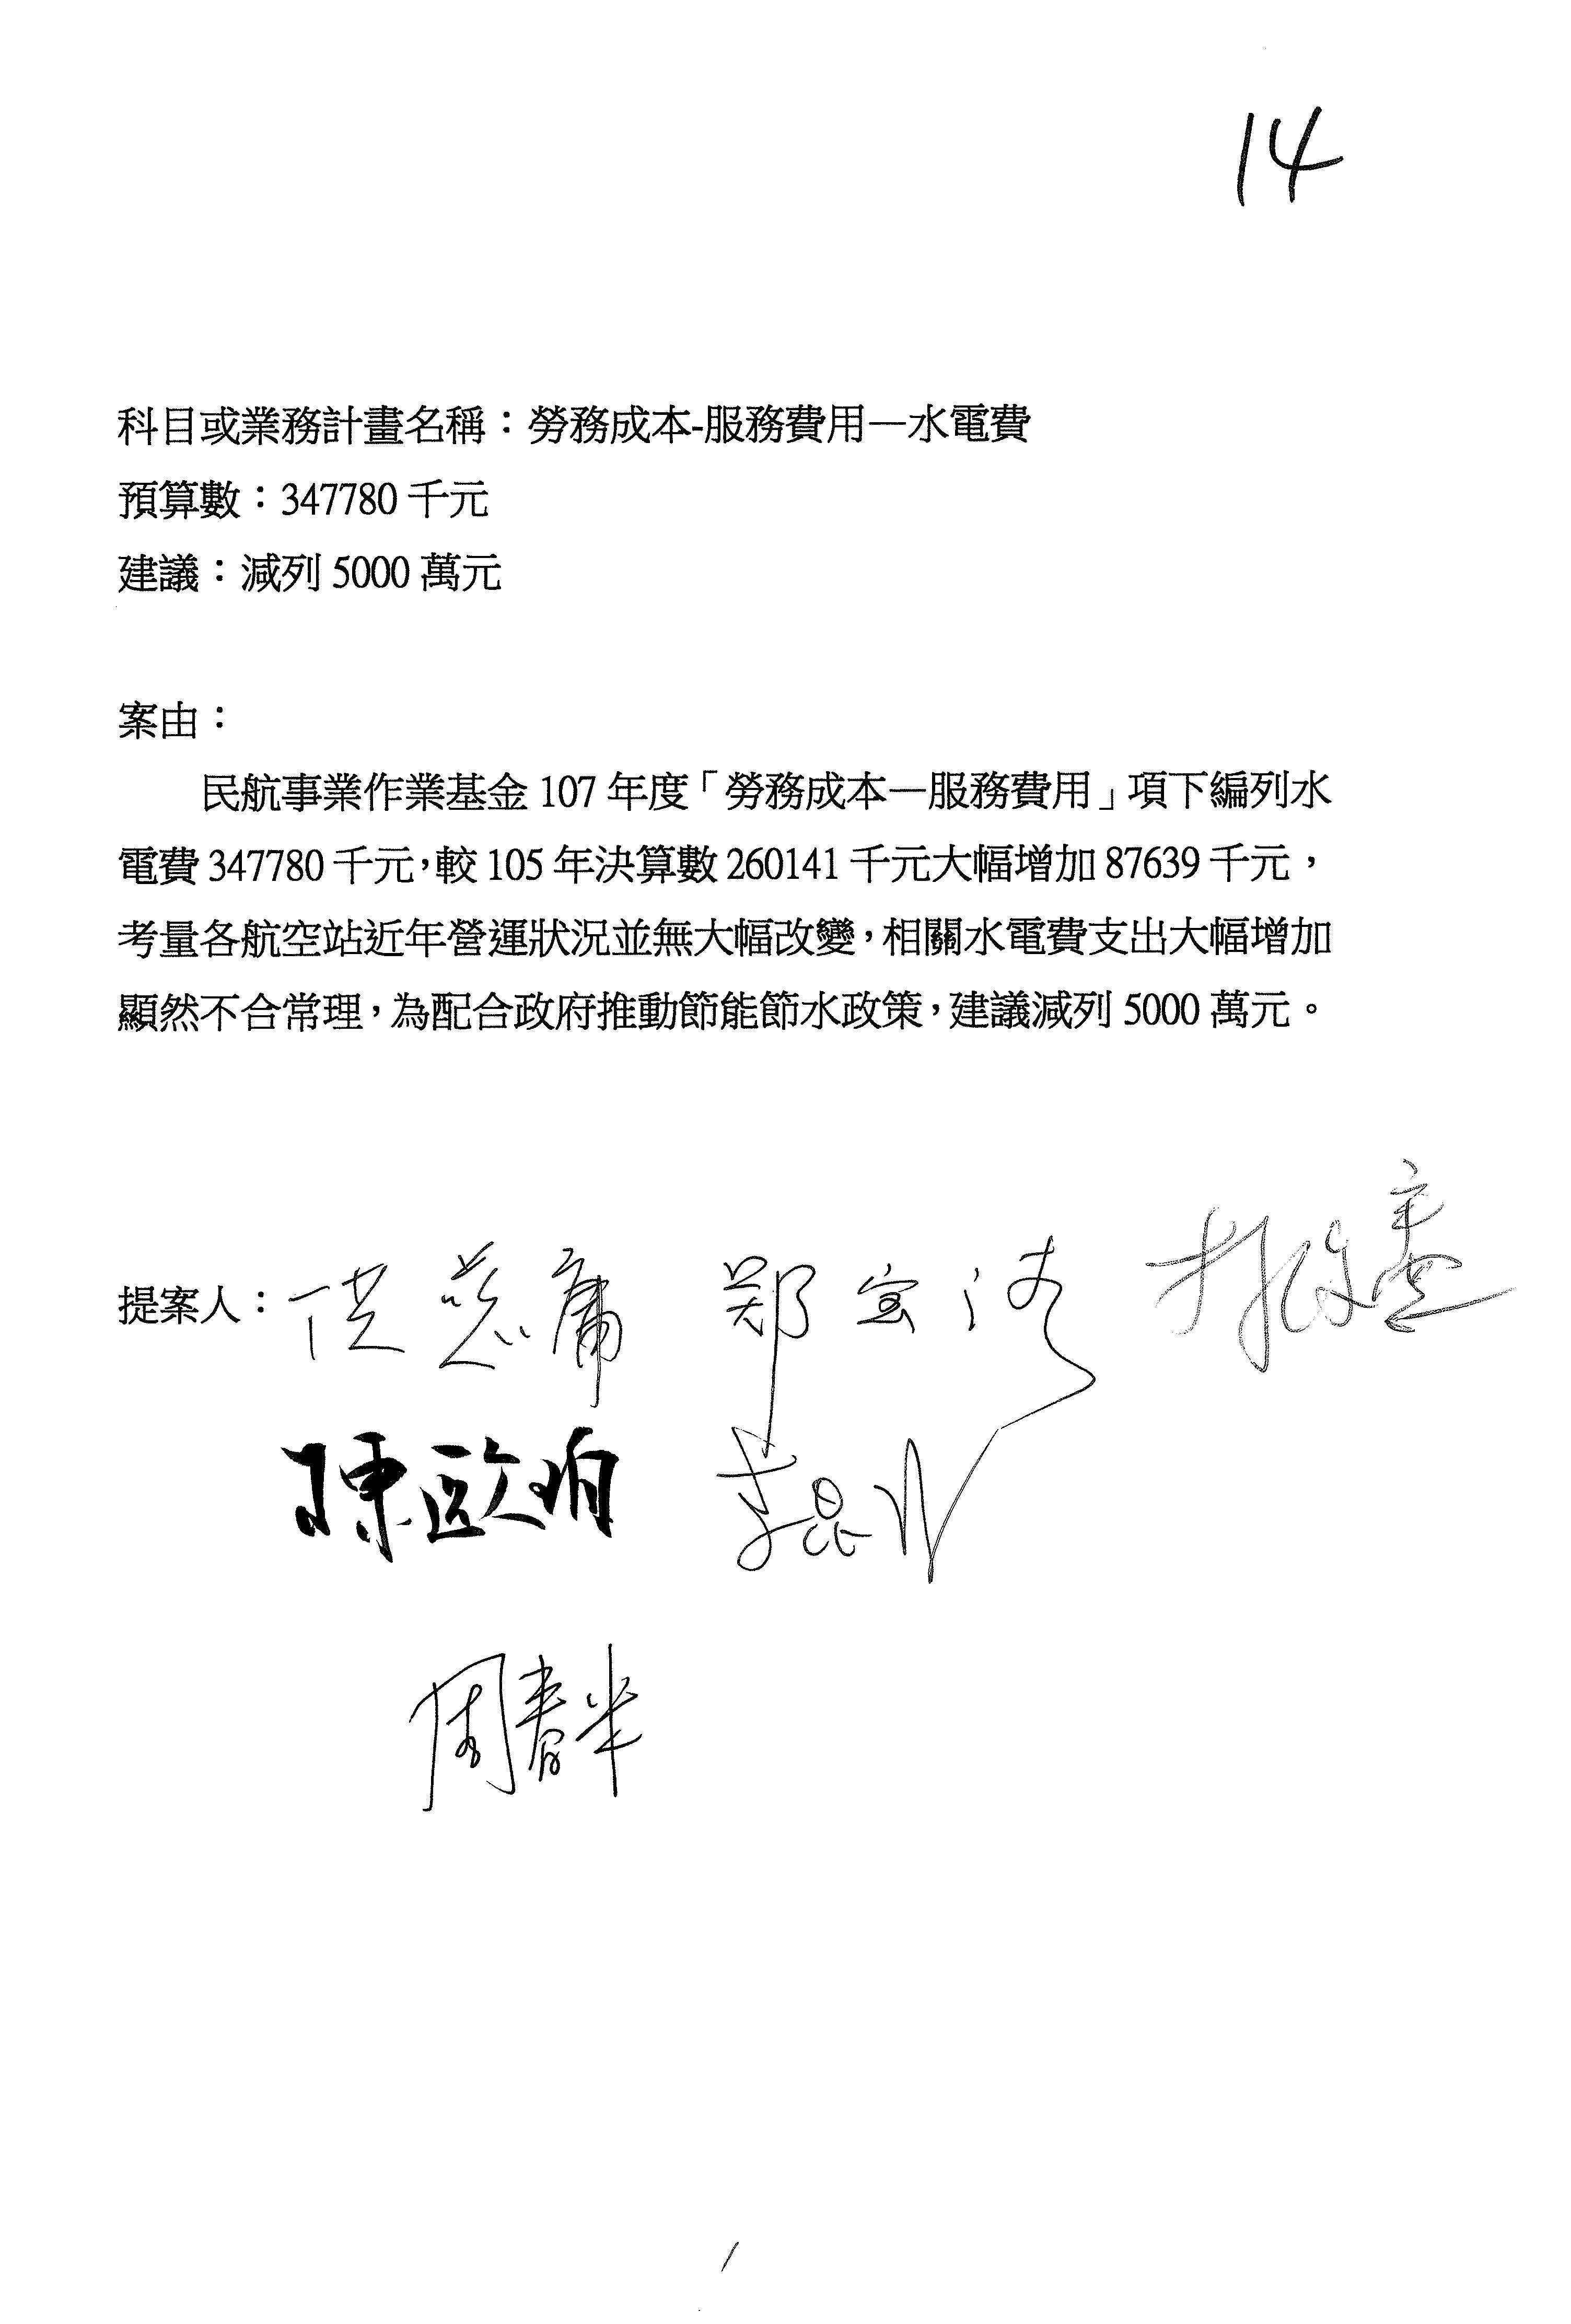 14
科目或業務計畫名稱：勞務成本-服務費用—水電費
預算數：347780 千元
建議：減列 5000 萬元
案由：
民航事業作業基金 107 年度「勞務成本—服務費用」項下編列水
電費 347780 千元，較 105 年決算數 260141 千元大幅增加 87639 千元，
考量各航空站近年營運狀況並無大幅改變，相關水電費支出大幅增加
顯然不合常理，為配合政府推動節能節水政策，建議減列 5000 萬元。
提案人：洪慈庸 鄭宝清 林俊憲
陳歐珀 李昆泽
周春米